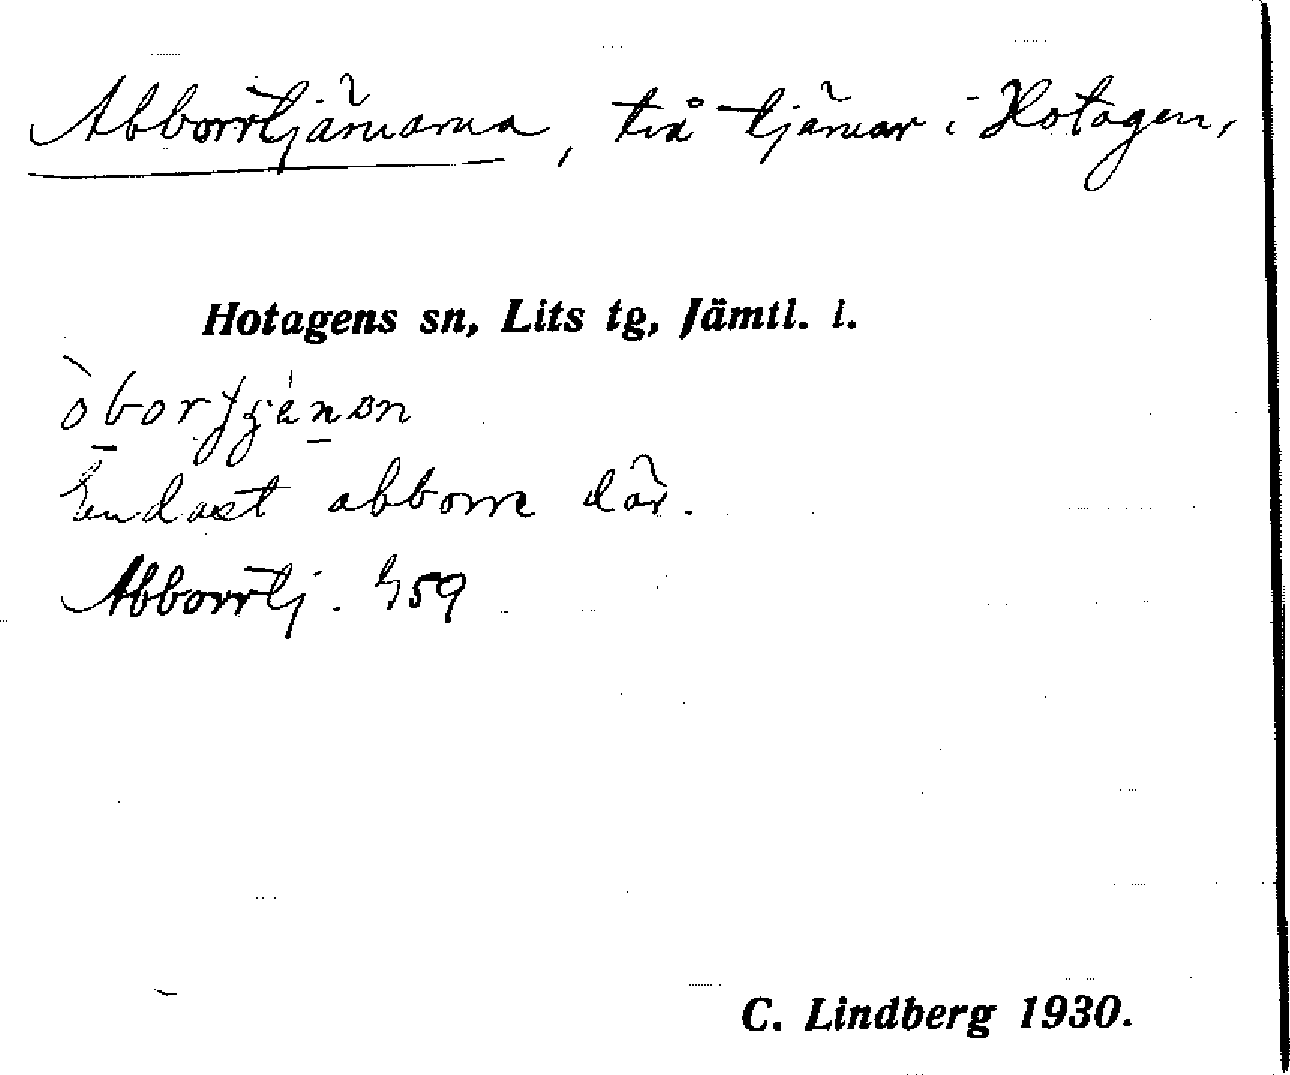 Abborrtjärnarna, två tjärnar i Hotagen,
Hotagens sn, Lits tg, Jämtl. l.
Endast abborre där.
Abborrtj. 459
C. Lindberg 1930.